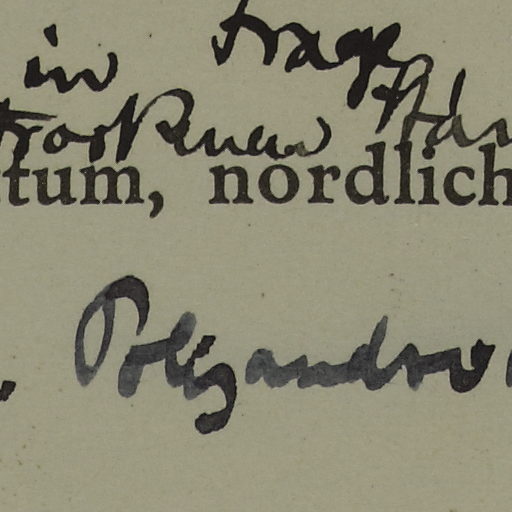 in trage
trocknen
tum, nordlich
Polyandro